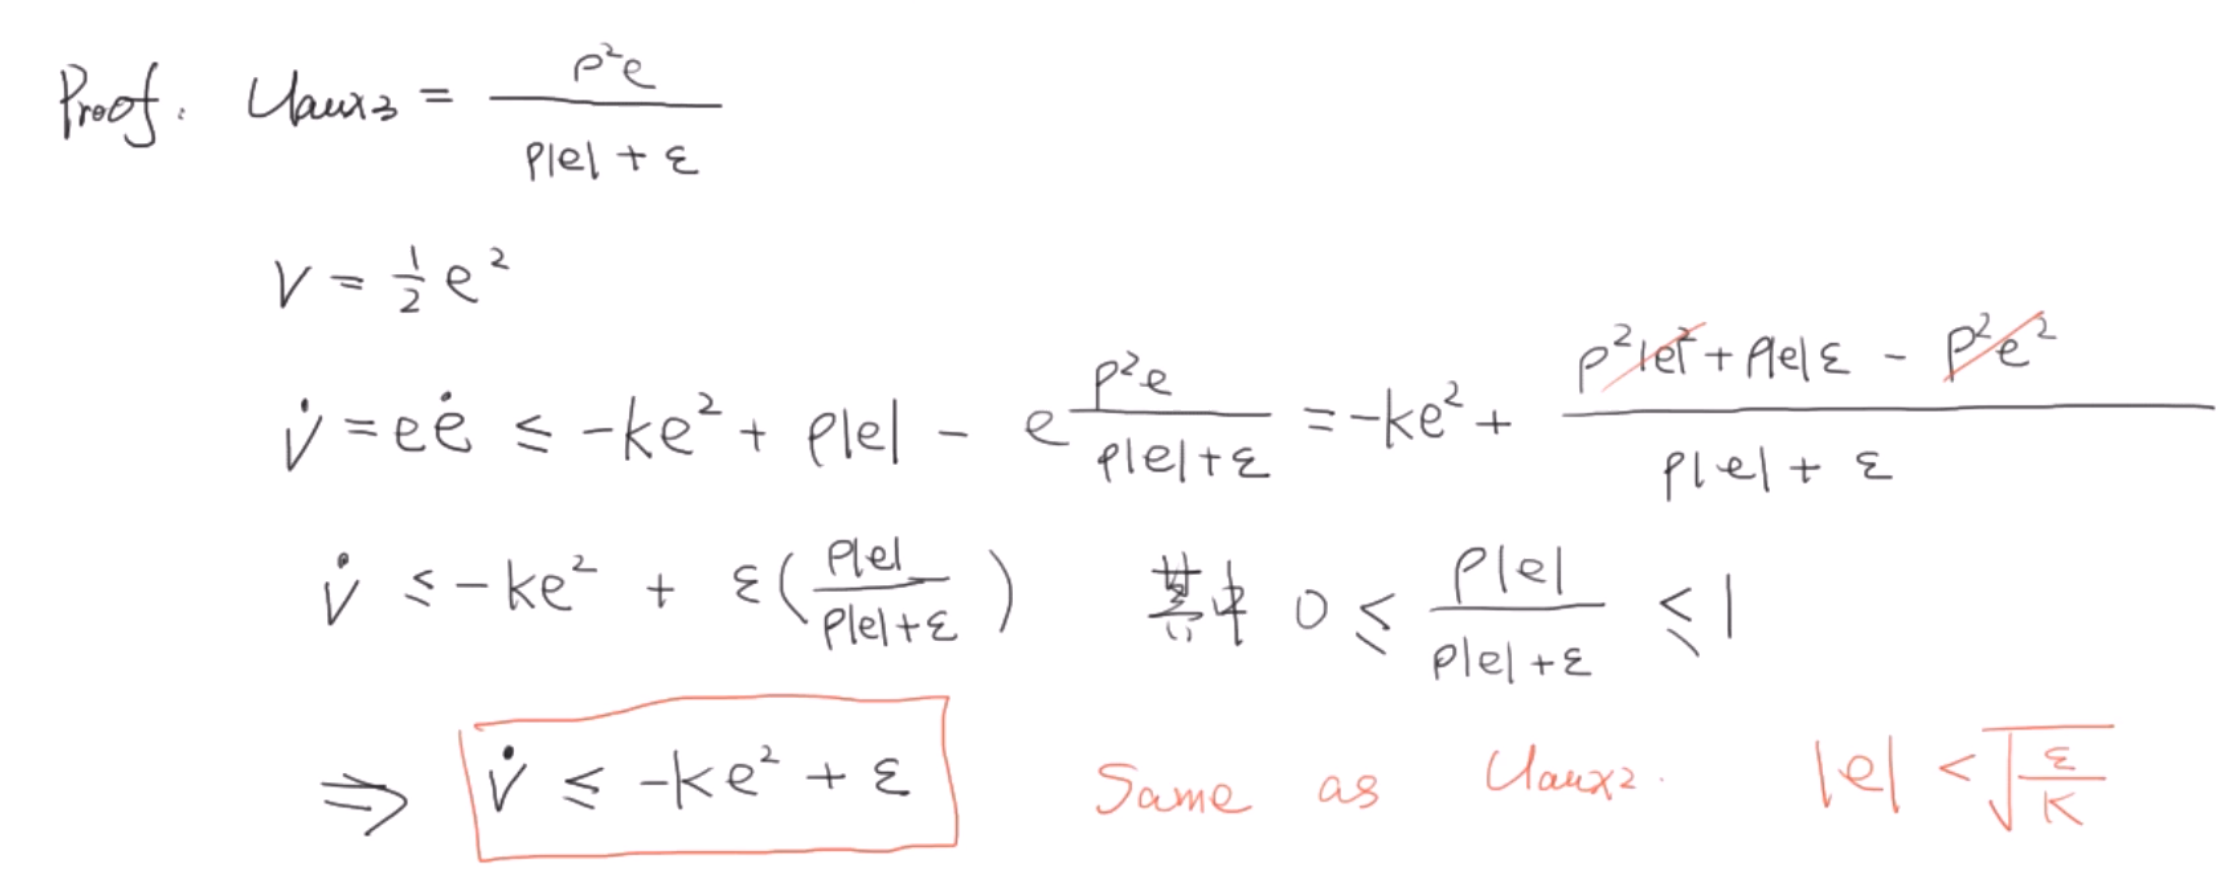 Proof. Uaux3 = ρ²e / (ρ|e| + ε)
V = 1/2 e²
V̇ = eė ≤ -ke² + ρ|e| - e ρ²e / (ρ|e| + ε) = -ke² + (ρ²|e|² + ρ|e|ε - ρ²e²) / (ρ|e| + ε)
V̇ ≤ -ke² + ε(ρ|e| / (ρ|e| + ε)) 其中 0 ≤ ρ|e| / (ρ|e| + ε) ≤ 1
⇒ V̇ ≤ -ke² + ε Same as Uaux2. |e| < √(ε/K)